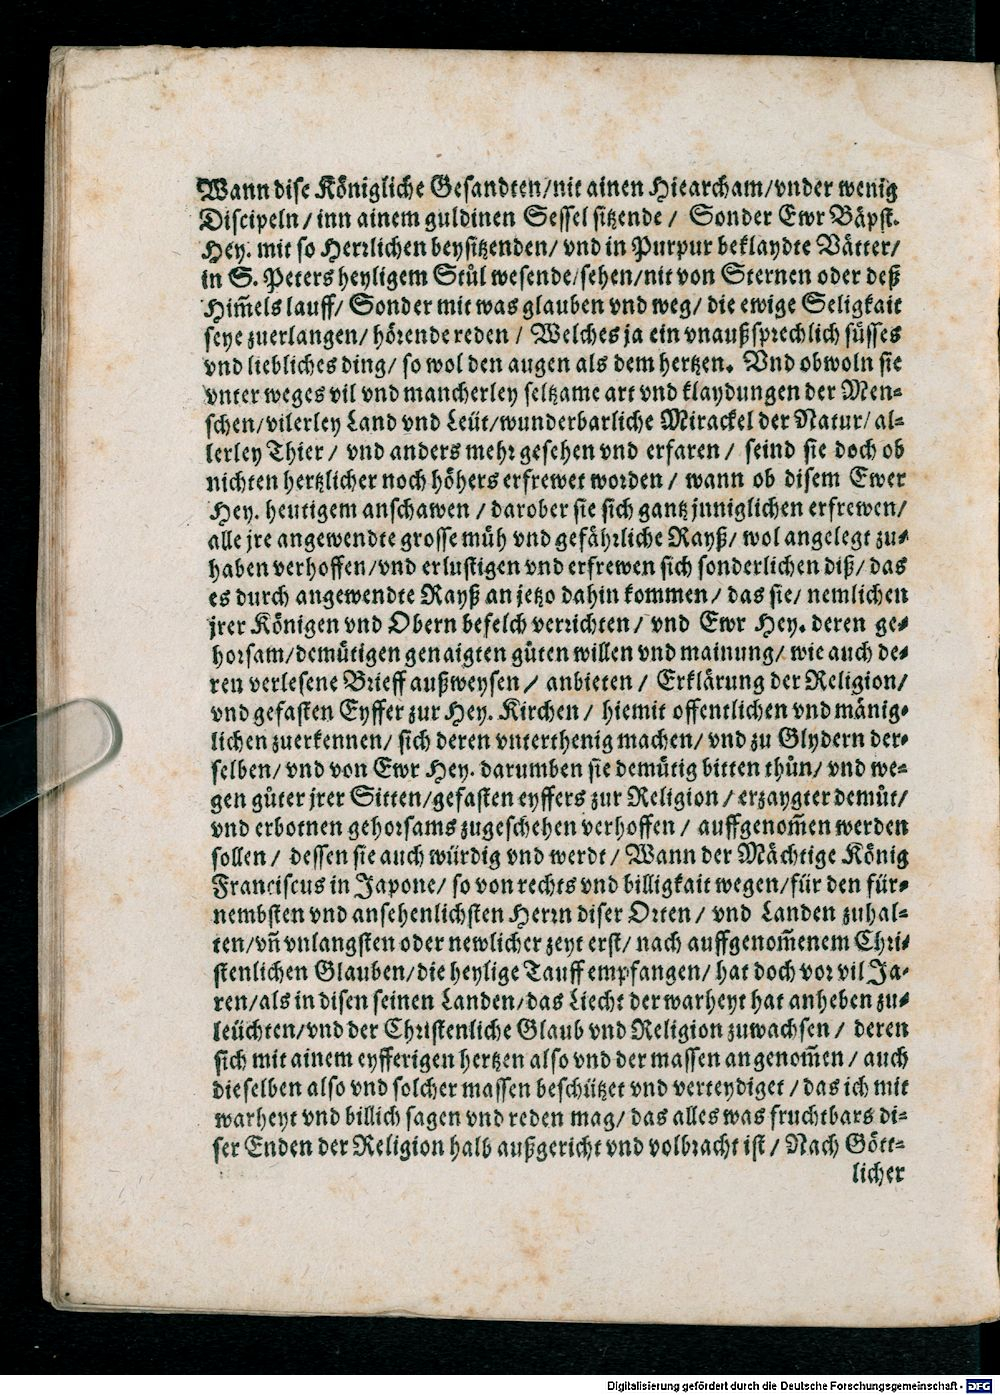 Wann dise Königliche Gesandten/nit ainen Hiearcham/vnder wenig
Discipeln/inn ainem guldinen Sessel sitzende/ Sonder Ewr Bäpst.
Hey. mit so Herrlichen beysitzenden/ vnd in Purpur beklaydte Vätter/
in S. Peters heyligem Stůl wesende/sehen/nit von Sternen oder deß
Him̃els lauff/ Sonder mit was glauben vnd weg/ die ewige Seligkait
seye zuerlangen/ hörende reden/ Welches ja ein vnaußsprechlich süsses
vnd liebliches ding/ so wol den augen als dem hertzen. Vnd obwoln sie
vnter weges vil vnd mancherley seltzame art vnd klaydungen der Men-
schen/vilerley Land vnd Leüt/wunderbarliche Mirackel der Natur/ al-
lerley Thier/ vnd anders mehr gesehen vnd erfaren/ seind sie doch ob
nichten hertzlicher noch höhers erfrewet worden/ wann ob disem Ewer
Hey. heutigem anschawen/darober sie sich gantz juniglichen erfrewen/
alle jre angewendte grosse müh vnd gefährliche Rayß/ wol angelegt zu-
haben verhoffen/vnd erlustigen vnd erfrewen sich sonderlichen diß/ das
es durch angewendte Rayß an jetzo dahin kommen/ das sie/ nemlichen
jrer Königen vnd Obern befelch verrichten/ vnd Ewr Hey. deren ge-
horsam/demütigen genaigten gůten willen vnd mainung/ wie auch de-
ren verlesene Brieff außweysen/ anbieten/ Erklärung der Religion/
vnd gefasten Eyffer zur Hey. Kirchen/ hiemit offentlichen vnd mänig-
lichen zuerkennen/ sich deren vnterthenig machen/ vnd zu Glydern der-
selben/ vnd von Ewr Hey. darumben sie demütig bitten thůn/ vnd we-
gen gůter jrer Sitten/gefasten eyffers zur Religion/ erzaygter demůt/
vnd erbotnen gehorsams zugeschehen verhoffen/ auffgenom̃en werden
sollen/ dessen sie auch würdig vnd werdt/ Wann der Mächtige König
Franciscus in Japone/ so von rechts vnd billigkait wegen/für den für-
nembsten vnd ansehenlichsten Herrn diser Orten/ vnd Landen zuhal-
ten/vn̄ vnlangsten oder newlicher zeyt erst/ nach auffgenom̃enem Chri-
stenlichen Glauben/die heylige Tauff empfangen/ hat doch vor vil Ja-
ren/als in disen seinen Landen/das Liecht der warheyt hat anheben zu-
leüchten/vnd der Christenliche Glaub vnd Religion zuwachsen/ deren
sich mit ainem eyfferigen hertzen also vnd der massen angenom̃en/ auch
dieselben also vnd solcher massen beschützet vnd verteydiget/das ich mit
warheyt vnd billich sagen vnd reden mag/ das alles was fruchtbars di-
ser Enden der Religion halb außgericht vnd volbracht ist/ Nach Gött-
licher
Digitalisierung gefördert durch die Deutsche Forschungsgemeinschaft - DFG